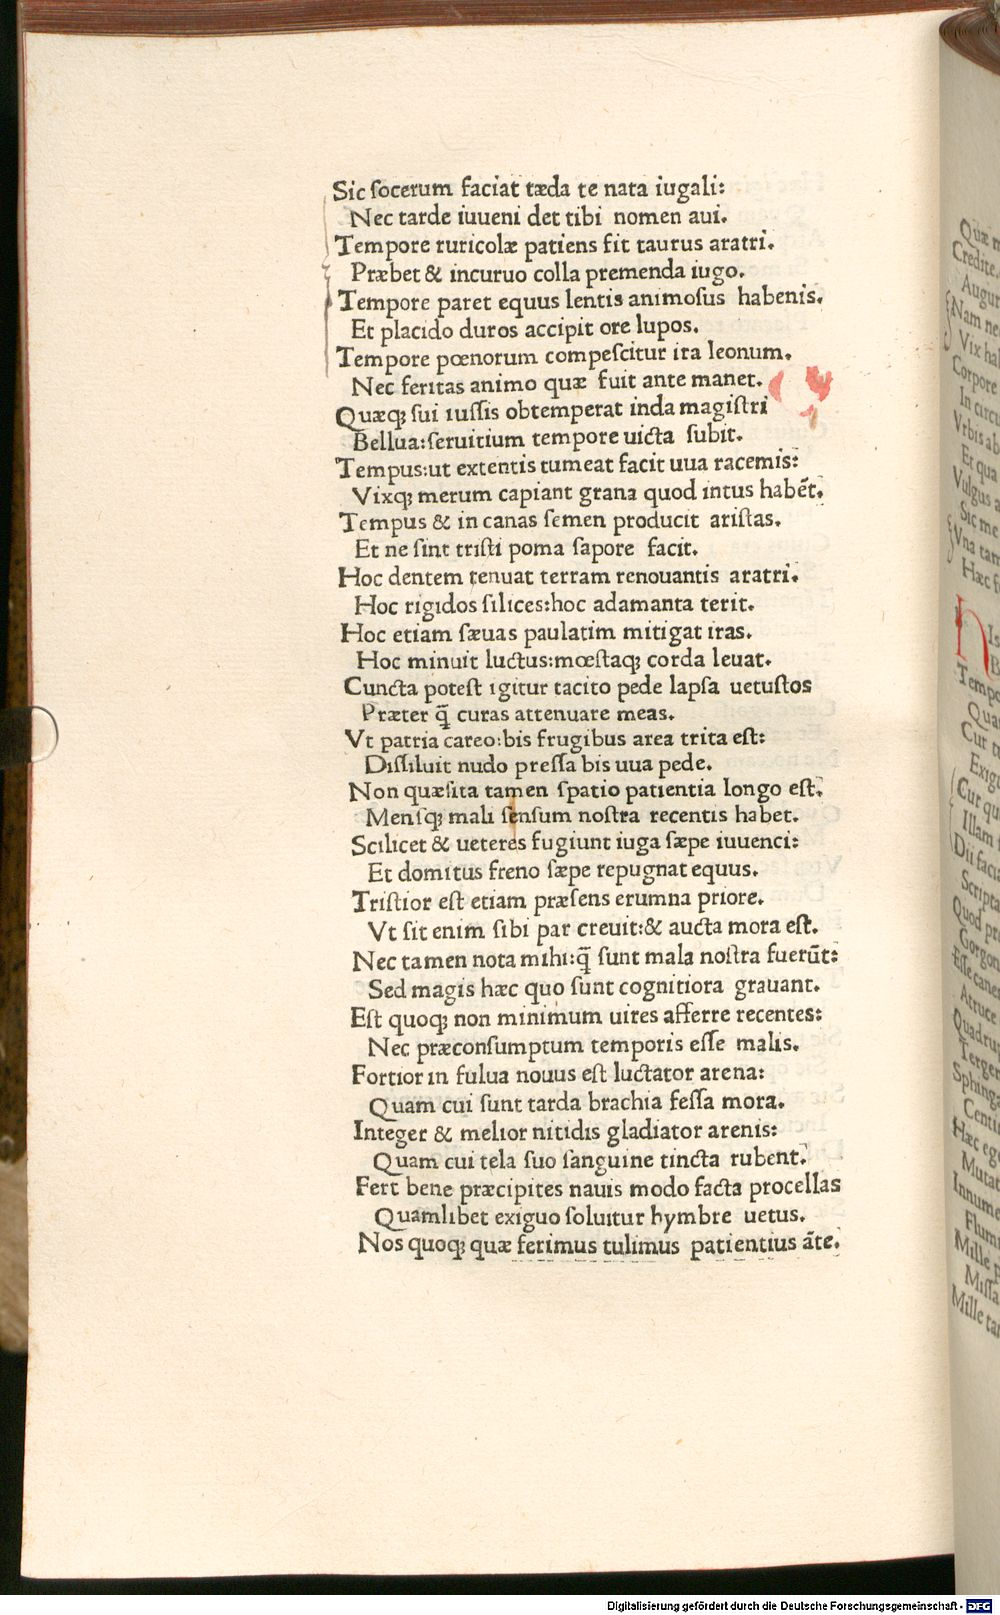 Sic ſocerum faciat tæda te nata iugali:
Nec tarde iuueni det tibi nomen aui.
Tempore ruricolæ patiens fit taurus aratri.
Præbet & incuruo colla premenda iugo.
Tempore paret equus lentis animoſus habenis.
Et placido duros accipit ore lupos.
Tempore pœnorum compeſcitur ira leonum.
Nec feritas animo quæ fuit ante manet.
Quæqꝫ ſui iuſſis obtemperat inda magiſtri
Bellua:ſeruitium tempore uicta ſubit.
Tempus:ut extentis tumeat facit uua racemis:
Vixqꝫ merum capiant grana quod intus habēt.
Tempus & in canas ſemen producit ariſtas.
Et ne ſint triſti poma ſapore facit.
Hoc dentem tenuat terram renouantis aratri.
Hoc rigidos ſilices:hoc adamanta terit.
Hoc etiam ſæuas paulatim mitigat iras.
Hoc minuit luctus:mœſtaqꝫ corda leuat.
Cuncta poteſt igitur tacito pede lapſa uetuſtos
Præter q̄ curas attenuare meas.
Vt patria careo:bis frugibus area trita eſt:
Diſſiluit nudo preſſa bis uua pede.
Non quæſita tamen ſpatio patientia longo eſt.
Menſqꝫ mali ſenſum noſtra recentis habet.
Scilicet & ueteres fugiunt iuga ſæpe iuuenci:
Et domitus freno ſæpe repugnat equus.
Triſtior eſt etiam præſens erumna priore.
Vt ſit enim ſibi par creuit:& aucta mora eſt.
Nec tamen nota mihi:q̄ ſunt mala noſtra fuerūt:
Sed magis hæc quo ſunt cognitiora grauant.
Eſt quoqꝫ non minimum uires afferre recentes:
Nec præconſumptum temporis eſſe malis.
Fortior in fulua nouus eſt luctator arena:
Quam cui ſunt tarda brachia feſſa mora.
Integer & melior nitidis gladiator arenis:
Quam cui tela ſuo ſanguine tincta rubent.
Fert bene præcipites nauis modo facta procellas
Quamlibet exiguo ſoluitur hymbre uetus.
Nos quoqꝫ quæ ferimus tulimus patientius āte.
Credite,
Augur
Nam ne
Vix ha
Corpore
In circu
Vrbis ab
Et qua
Vulgus a
Sic me
Vna tam
Hæc f
Tempo
Qua
Cur t
Exig
Cur qu
Illam
Dii facia
Scripta
Quod pr
Gorgon
Eſſe canes
Atruce
Quadrup
Terge
Sphinga
Centi
Hæc eg
Mutat
Innume
Flumi
Mille p
Miſſa
Mille tam
Digitalisierung gefördert durch die Deutsche Forschungsgemeinschaft - DFG